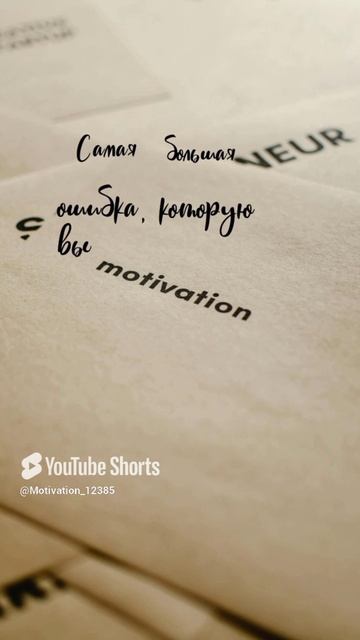 Самая большая
NEUR
ошибка, которую
вы
motivation
YouTube Shorts
@Motivation_12385